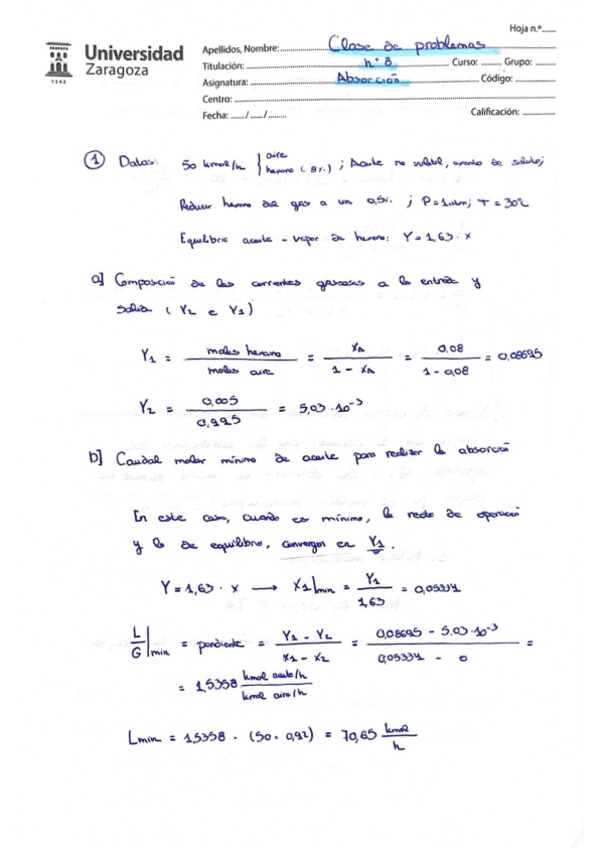 Hoja n.º......
Universidad
Zaragoza
1542
Apellidos, Nombre: Clase de problemas
Titulación: nº 8 Curso: ...... Grupo: ......
Asignatura: Absorción Código: ......
Centro:
Fecha: ...../...../....... Calificación: ............
① Datos: 50 kmol/h { aire ; Aceite no volátil, exento de soluto;
hexano (8%)
Reducir hexano del gas a un 0,5%. ; P = 1 atm; T = 30ºC
Equilibrio aceite - vapor de hexano: Y = 1,63 · x
a] Composición de las corrientes gaseosas a la entrada y
salida ( Y2 e Y1 )
Y1 = moles hexano / moles aire = XA / 1 - XA = 0.08 / 1 - 0,08 = 0,08695
Y2 = 0,005 / 0,995 = 5,03 · 10⁻³
b] Caudal molar mínimo de aceite para realizar la absorción
En este caso, cuando es mínimo, la recta de operación
y la de equilibrio, convergen en Y1.
Y = 1,63 · x ⟶ X1|min = Y1 / 1,63 = 0,05334
L/G|min = pendiente = Y1 - Y2 / X1 - X2 = 0,08695 - 5,03 · 10⁻³ / 0,05334 - 0 =
= 1,5358 kmol aceite/h / kmol aire/h
Lmin = 1,5358 · (50 · 0,92) = 70,65 kmol / h